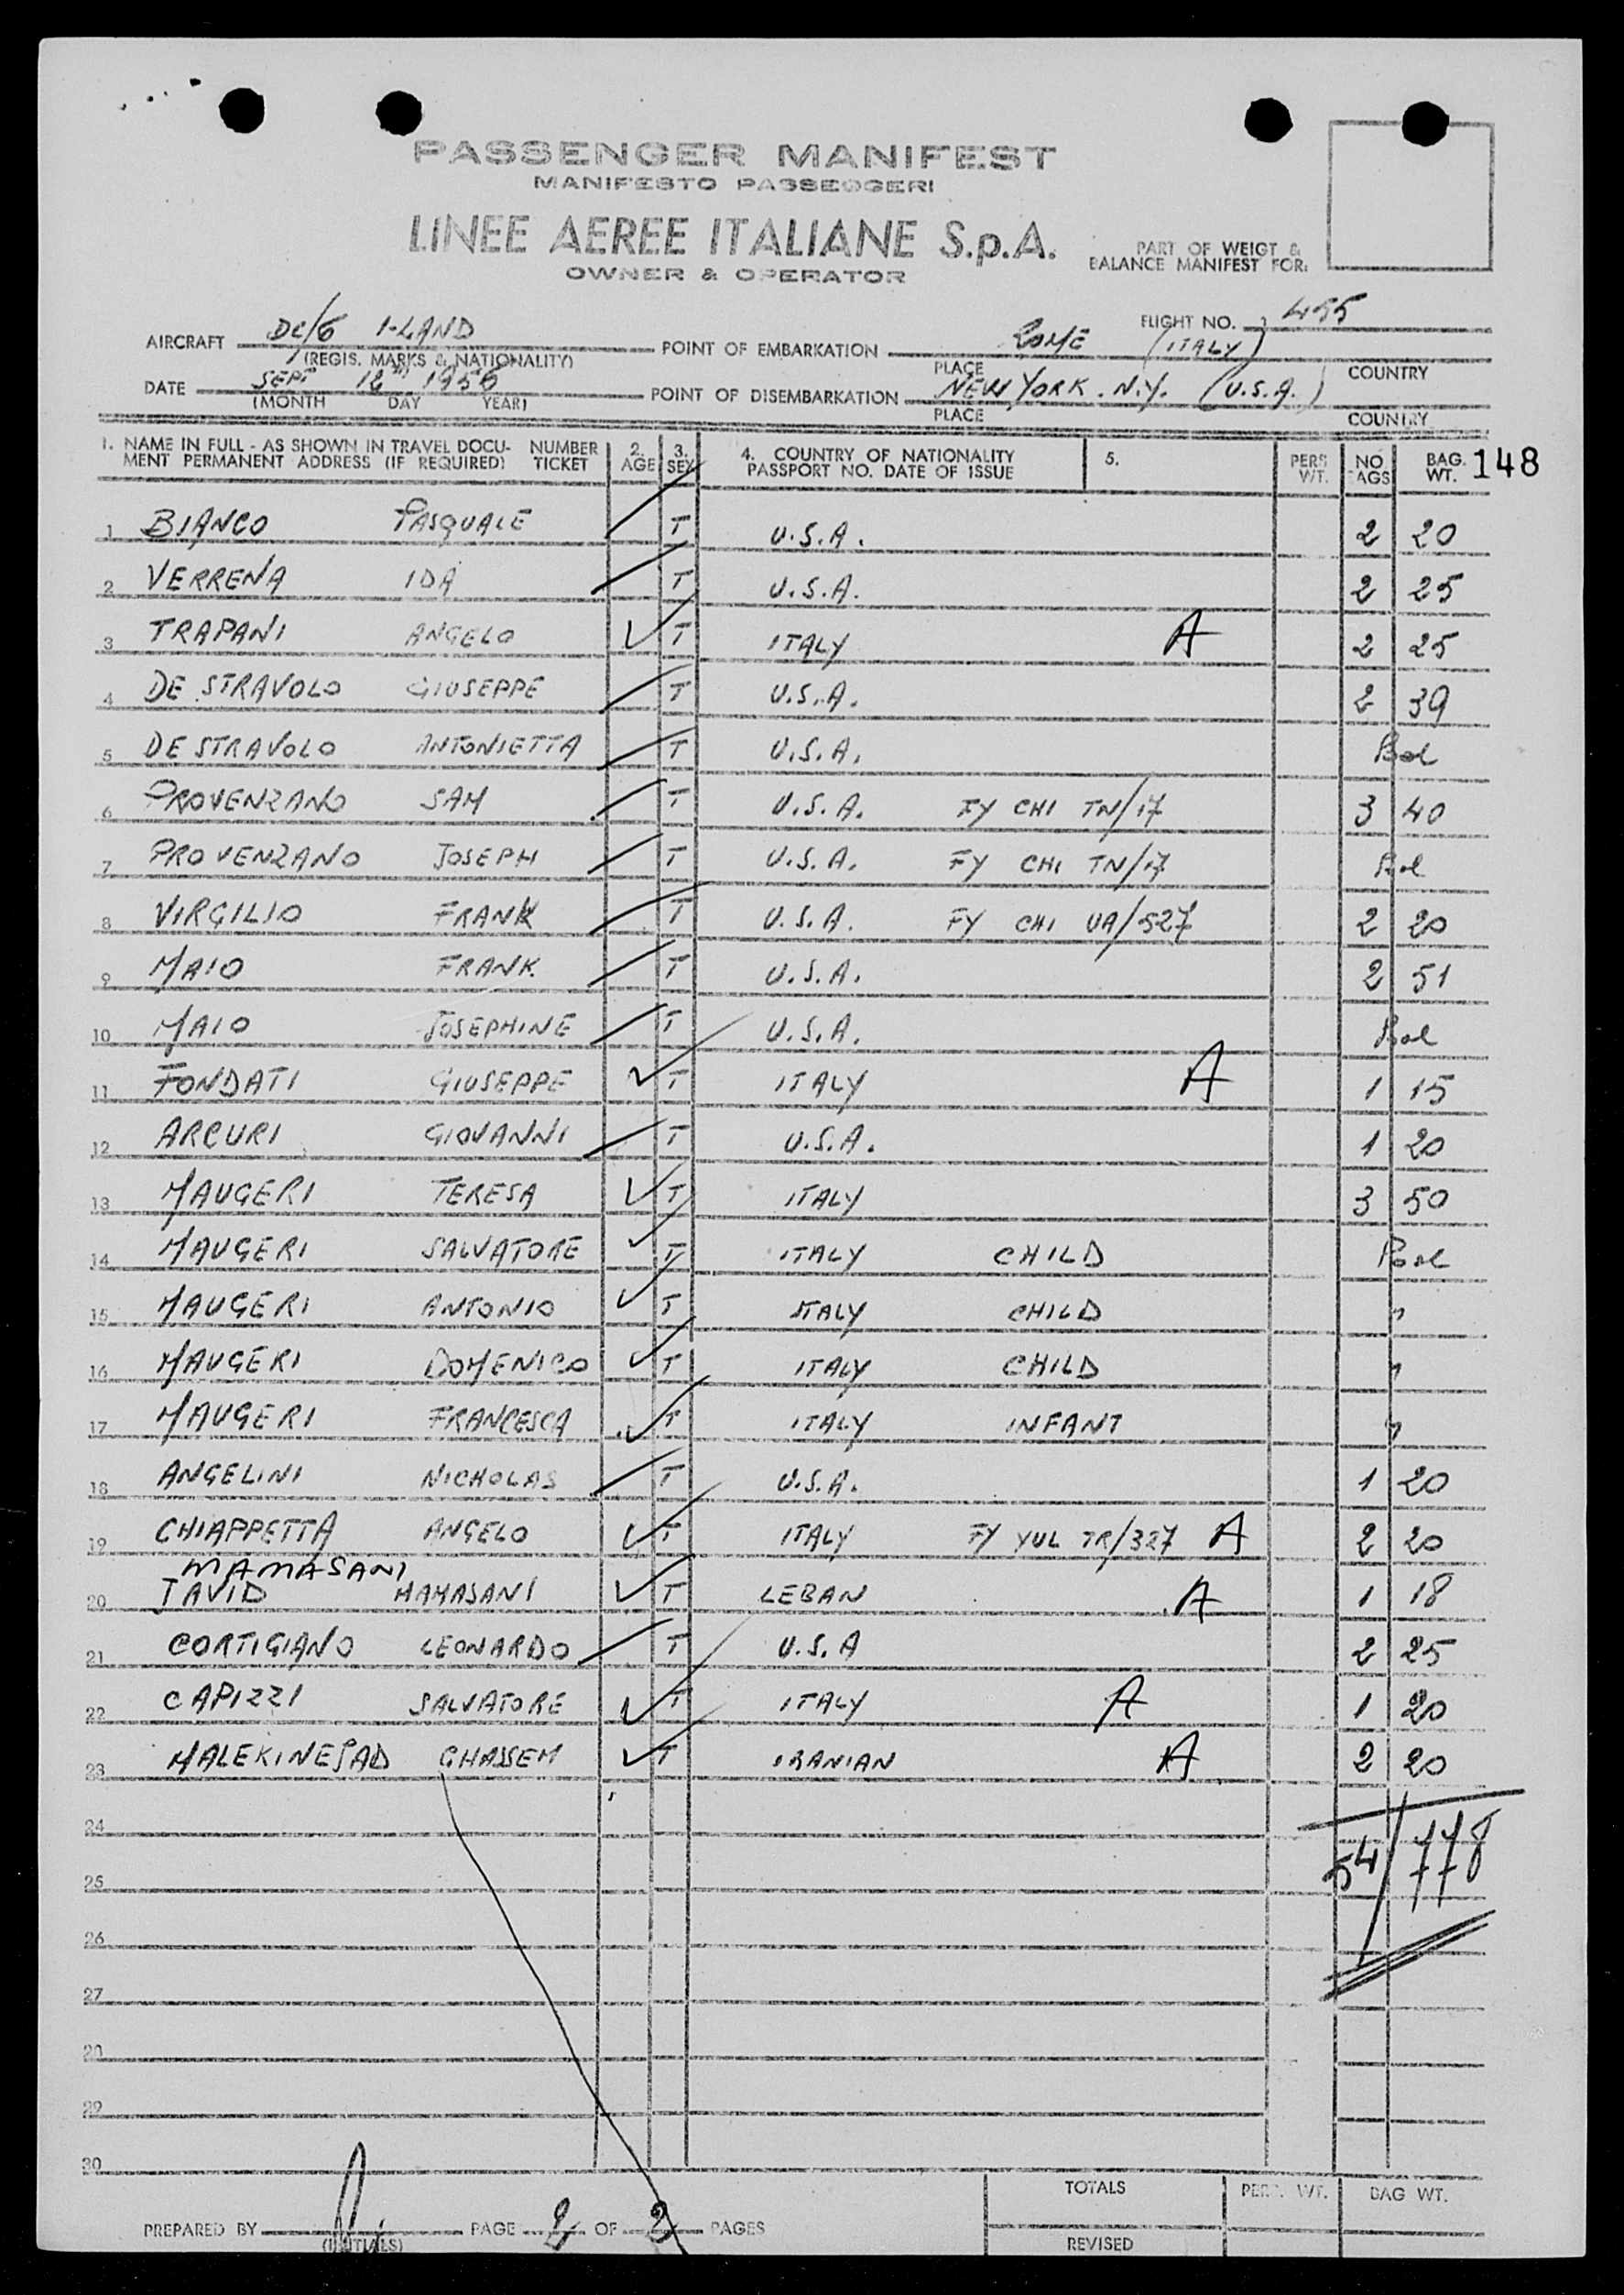 PASSENGER MANIFEST
MANIFESTO PASSEGGERI
LINEE AEREE ITALIANE S.p.A.
OWNER & OPERATOR
PART OF WEIGT &
BALANCE MANIFEST FOR:
AIRCRAFT DC/6 I-LAND
(REGIS. MARKS & NATIONALITY)
FLIGHT NO. 455
POINT OF EMBARKATION ROME (ITALY)
PLACE COUNTRY
DATE SEPT 12TH 1956
(MONTH DAY YEAR)
POINT OF DISEMBARKATION NEW YORK. N.Y. (U.S.A.)
PLACE COUNTRY
1. NAME IN FULL - AS SHOWN IN TRAVEL DOCU- NUMBER 2. 3. 4. COUNTRY OF NATIONALITY 5. PERS NO BAG. 148
MENT PERMANENT ADDRESS (IF REQUIRED) TICKET AGE SEX PASSPORT NO. DATE OF ISSUE WT. AGS WT.
1 BIANCO PASQUALE T U.S.A. 2 20
2 VERRENA IDA T U.S.A. 2 25
3 TRAPANI ANGELO T ITALY A 2 25
4 DE STRAVOLO GIUSEPPE T U.S.A. 2 39
5 DE STRAVOLO ANTONIETTA T U.S.A. Pool
6 PROVENZANO SAM T U.S.A. FY CHI TN/17 3 40
7 PROVENZANO JOSEPH T U.S.A. FY CHI TN/17 Pool
8 VIRGILIO FRANK T U.S.A. FY CHI UA/527 2 20
9 MAIO FRANK. T U.S.A. 2 51
10 MAIO JOSEPHINE T U.S.A. Pool
11 FONDATI GIUSEPPE T ITALY A 1 15
12 ARCURI GIOVANNI T U.S.A. 1 20
13 MAUGERI TERESA T ITALY 3 50
14 MAUGERI SALVATORE T ITALY CHILD Pool
15 MAUGERI ANTONIO T ITALY CHILD "
16 MAUGERI DOMENICO T ITALY CHILD "
17 MAUGERI FRANCESCA T ITALY INFANT "
18 ANGELINI NICHOLAS T U.S.A. 1 20
19 CHIAPPETTA ANGELO T ITALY FY YUL TR/327 A 2 20
MAMASANI
20 JAVID MAMASANI T LEBAN A 1 18
21 CORTIGIANO LEONARDO T U.S.A 2 25
22 CAPIZZI SALVATORE T ITALY A 1 20
23 MALEKINEJAD GHASSEM T IRANIAN A 2 20
24
54/778
25
26
27
28
29
30
TOTALS PERS. WT. BAG WT.
PREPARED BY
(INITIALS)
PAGE 2 OF 3 PAGES
REVISED